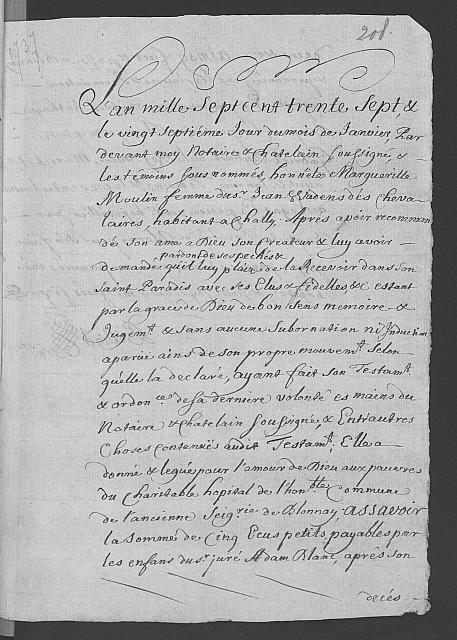 208.
1737
L'an mille Sept cent trente Sept, &
le vingt Septiéme Jour du mois de Janvier, Par
devant moy Notaire & Chatelain Soussigné &
les témoins Sous nommés, honnéte Margueritte
Moulin femme du Sr. Jean Wadens des Cheva-
laires, habitant a Chally, Aprés avoir recomman
dés son ame a Dieu Son Createur & luy avoir
pardon de ses pechés &
demandé quil luy plaise de la Recevoir dans son
Saint Paradis avec ses Elus & fidelles, & estant
par la grace de Dieu de bon Sens memoire &
Jugemt. & sans aucune Subornation ni Induction
aparüe ains de son propre mouvemt. Selon
quelle la declaré, ayant fait son Testamt.
& ordonce. de sa derniere volonté es mains du
Notaire & Chatelain Soussigné, & Entr'autres
Choses contenües audit Testamt. Elle a
donné & legué pour l'amour de Dieu aux pauvres
du Charitable hopital de l'honble. Commune
de l'ancienne Seigrie de Blonnay, assavoir
la Somme de Cinq Ecus petits, payables par
les enfans du Sr. juré Adam Blanc, aprés son
decés